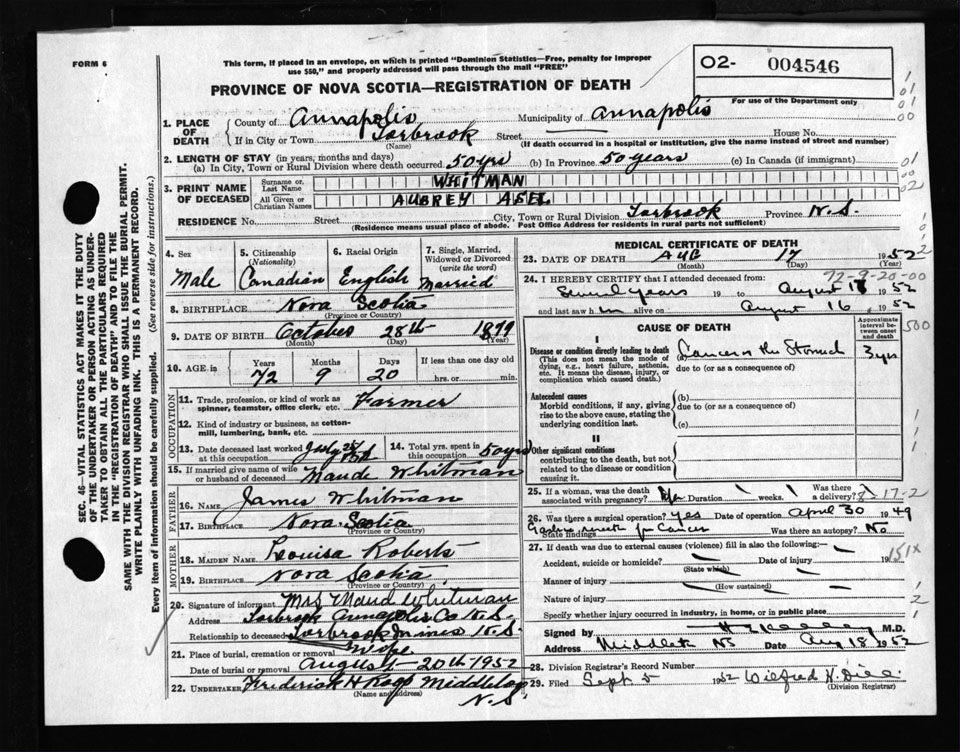 FORM 6
This form, if placed in an envelope, on which is printed "Dominion Statistics—Free, penalty for improper
use $50," and properly addressed will pass through the mail "FREE"
O2- 004546
For use of the Department only
PROVINCE OF NOVA SCOTIA—REGISTRATION OF DEATH
1. PLACE OF DEATH County of Annapolis Municipality of Annapolis
If in City or Town Torbrook Street House No.
(Name) (If death occurred in a hospital or institution, give the name instead of street and number)
2. LENGTH OF STAY (in years, months and days)
(a) In City, Town or Rural Division where death occurred 50 yrs (b) In Province 50 years (c) In Canada (if immigrant)
3. PRINT NAME OF DECEASED Surname or Last Name WHITMAN
All Given or Christian Names AUBREY ASEL
RESIDENCE No. Street City, Town or Rural Division Torbrook Province N.S.
(Residence means usual place of abode. Post Office Address for residents in rural parts not sufficient)
SEC. 46—VITAL STATISTICS ACT MAKES IT THE DUTY
OF THE UNDERTAKER OR PERSON ACTING AS UNDER-
TAKER TO OBTAIN ALL THE PARTICULARS REQUIRED
IN THE "REGISTRATION OF DEATH" AND TO FILE THE
SAME WITH THE DIVISION REGISTRAR WHO SHALL ISSUE THE BURIAL PERMIT.
WRITE PLAINLY WITH UNFADING INK. THIS IS A PERMANENT RECORD.
Every item of information should be carefully supplied. (See reverse side for instructions.)
4. Sex Male
5. Citizenship (Nationality) Canadian
6. Racial Origin English
7. Single, Married, Widowed or Divorced (write the word) Married
8. BIRTHPLACE Nova Scotia
(Province or Country)
9. DATE OF BIRTH October 28th 1879
(Month) (Day) (Year)
10. AGE in Years 72 Months 9 Days 20 If less than one day old hrs. or min.
OCCUPATION
11. Trade, profession, or kind of work as
spinner, teamster, office clerk, etc. Farmer
12. Kind of industry or business, as cotton-
mill, lumbering, bank, etc.
13. Date deceased last worked at this occupation July
14. Total yrs. spent in this occupation 50 yrs
15. If married give name of wife
or husband of deceased Maude Whitman
FATHER
16. NAME James Whitman
17. BIRTHPLACE Nova Scotia
(Province or Country)
MOTHER
18. MAIDEN NAME Louisa Roberts
19. BIRTHPLACE Nova Scotia
(Province or Country)
20. Signature of informant Mrs Maud Whitman
Address Torbrook Annapolis Co N.S.
Relationship to deceased Wife
21. Place of burial, cremation or removal Torbrook Mines N.S.
Date of burial or removal August 20th 1952
22. UNDERTAKER Frederick H Roop Middleton
(Name and address) N.S
MEDICAL CERTIFICATE OF DEATH
23. DATE OF DEATH AUG 17 1952
(Month) (Day) (Year)
72-9-20-00
24. I HEREBY CERTIFY that I attended deceased from:
Several years 19 to August 17 1952
and last saw him alive on August 16 1952
CAUSE OF DEATH
Approximate interval between onset and death
500
I
Disease or condition directly leading to death (a) Cancer of the Stomach 3 yrs
(This does not mean the mode of dying, e.g., heart failure, asthenia, etc. It means the disease, injury, or complication which caused death.)
due to (or as a consequence of)
Antecedent causes
Morbid conditions, if any, giving rise to the above cause, stating the underlying condition last.
(b)
due to (or as a consequence of)
(c)
II
Other significant conditions
contributing to the death, but not related to the disease or condition causing it.
25. If a woman, was the death associated with pregnancy? Duration weeks. Was there a delivery?
8-17-2
26. Was there a surgical operation? Yes Date of operation April 30 1949
State findings for Cancer Was there an autopsy? No
27. If death was due to external causes (violence) fill in also the following:—
151X
Accident, suicide or homicide? Date of injury 19
(State which)
Manner of injury
(How sustained)
Nature of injury
Specify whether injury occurred in industry, in home, or in public place
Signed by M.D.
Address Middleton NS Date Aug 18 1952
28. Division Registrar's Record Number
29. Filed Sept 5 1952 Wilfred H. Dill
(Division Registrar)